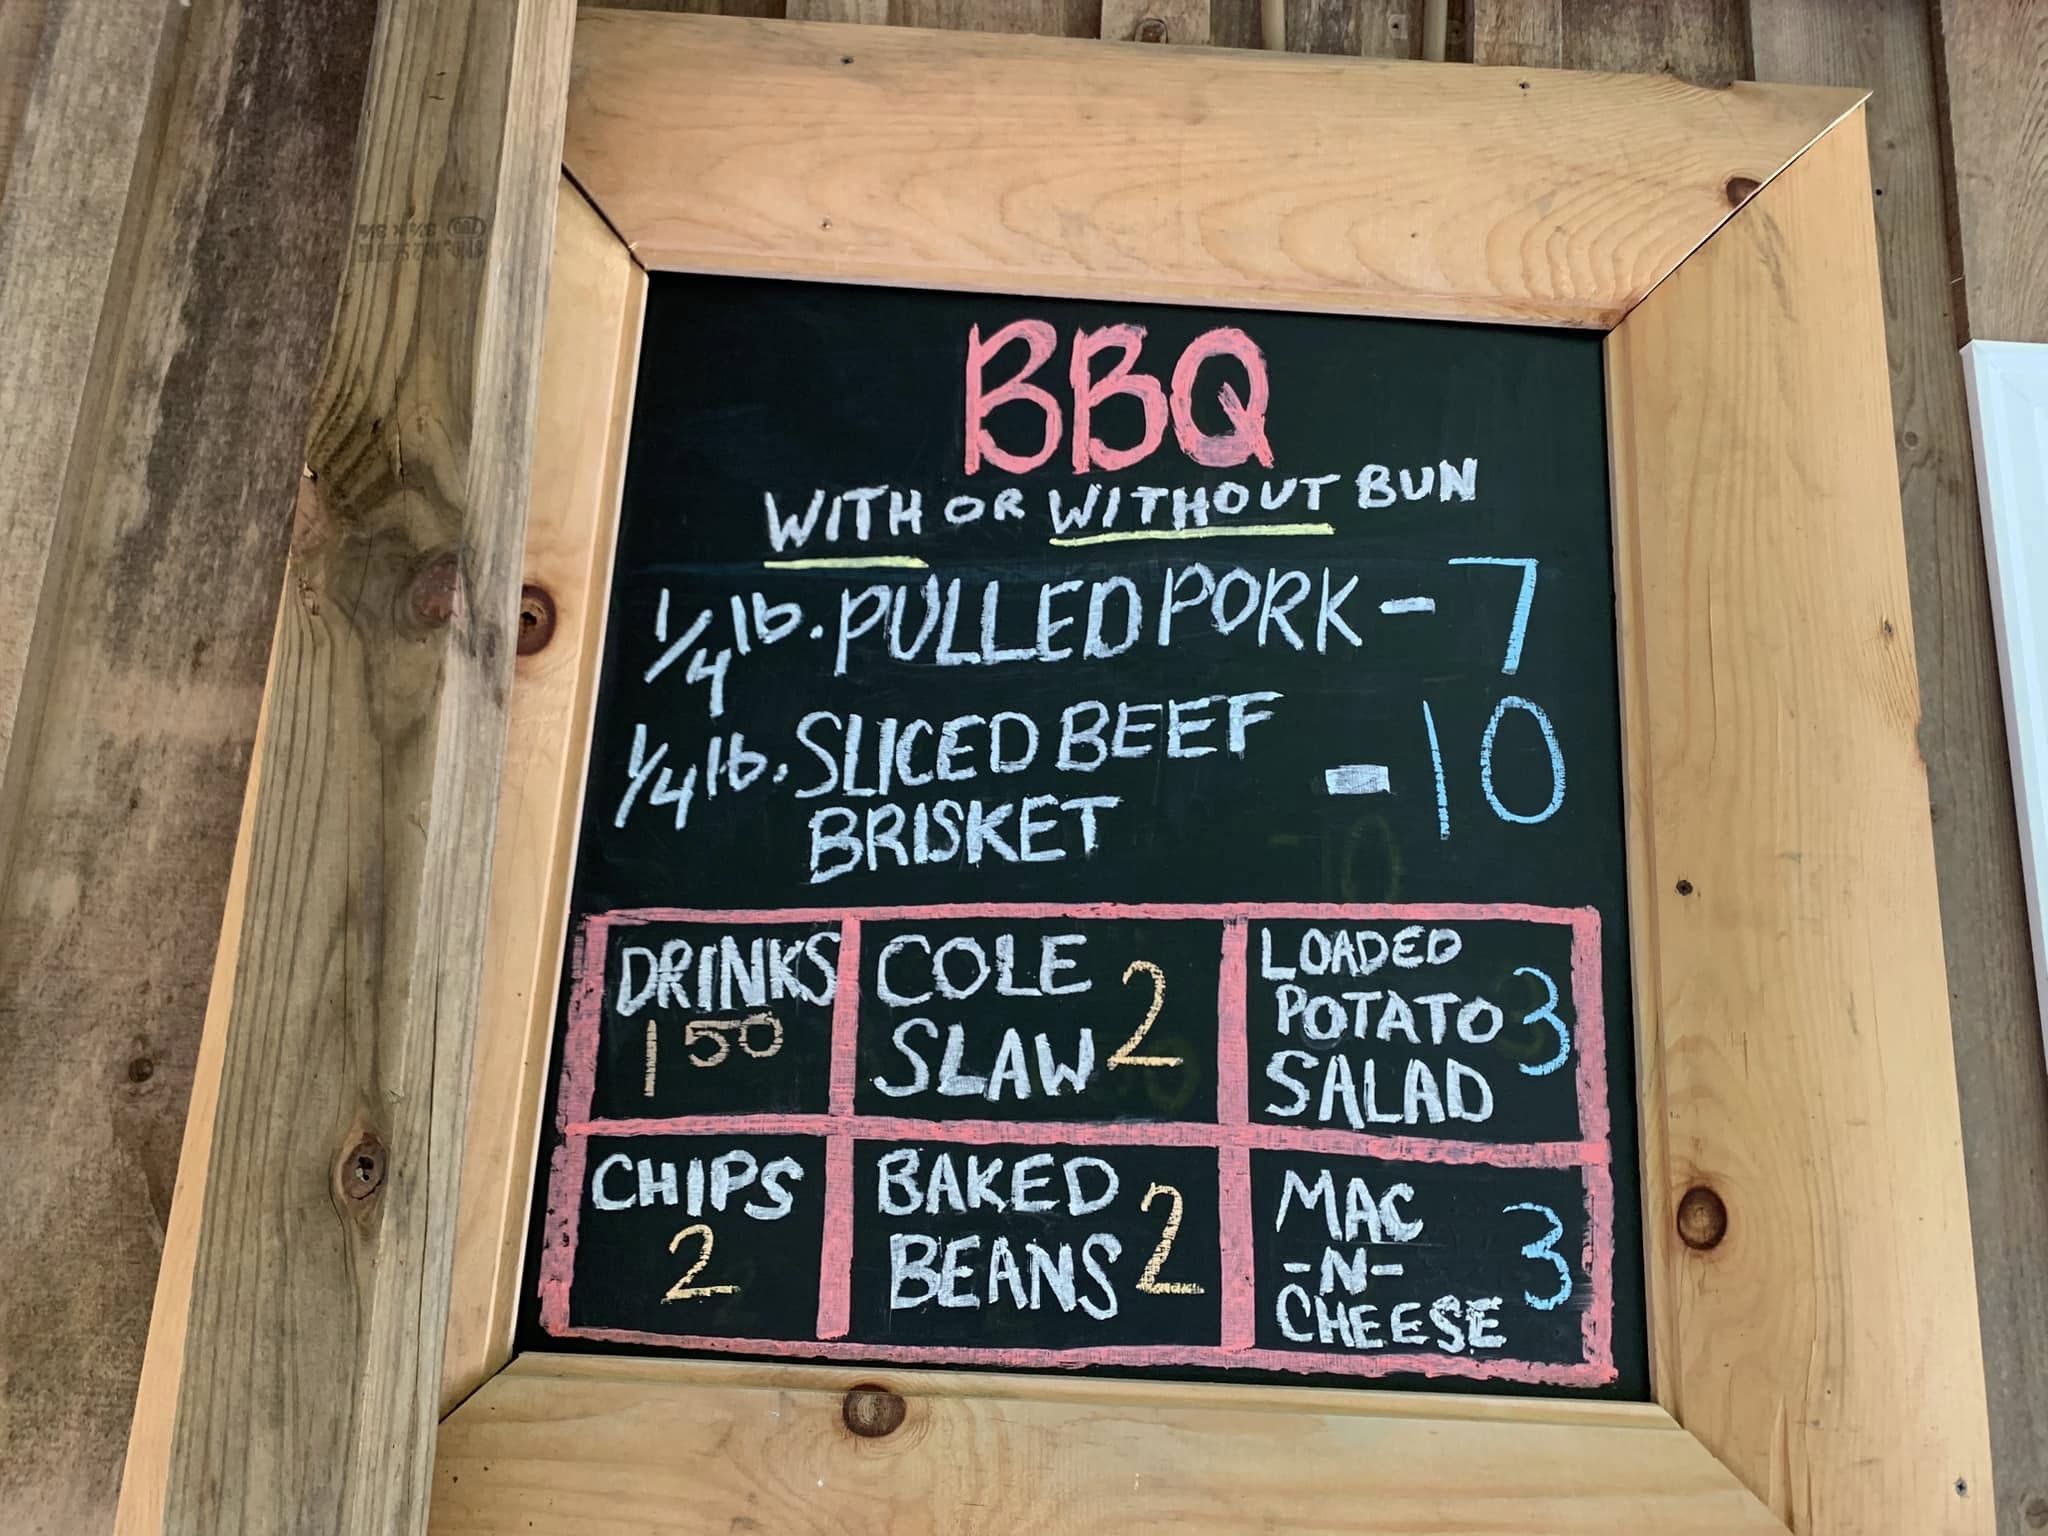 BBQ
WITH OR WITHOUT BUN
1/4 lb. PULLED PORK - 7
1/4 lb. SLICED BEEF - 10
BRISKET
DRINKS
1 50
COLE
SLAW 2
LOADED
POTATO 3
SALAD
CHIPS
2
BAKED
BEANS 2
MAC
-N- 3
CHEESE